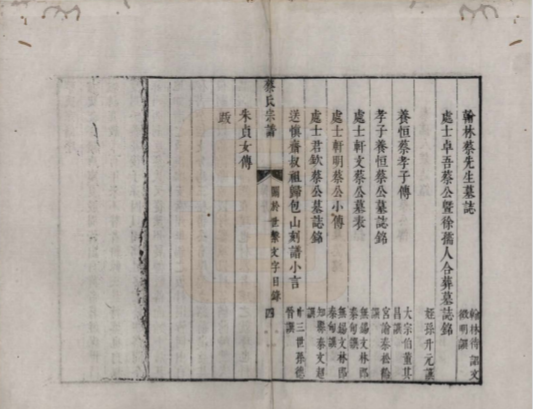 翰林蔡先生墓誌
翰林待詔文
徵明譔
處士卓吾蔡公暨徐孺人合葬墓誌銘
姪孫升元譔
養恒蔡孝子傳
大宗伯董其
昌譔
孝子養恒蔡公墓誌銘
宮諭秦松齡
譔
處士軒文蔡公墓表
無錫文林郎
秦甸譔
處士軒明蔡公小傳
無錫文林郎
秦甸譔
處士君欽蔡公墓誌銘
知縣秦文超
譔
送慎齋叔祖歸包山刻譜小言
十三世孫德
晉譔
蔡氏宗譜
關於世系文字目錄
四
朱貞女傳
跋